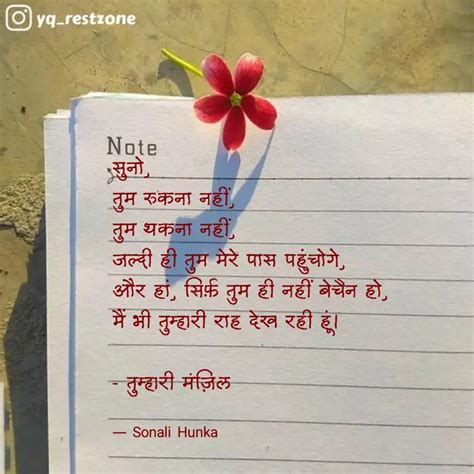 yq_restzone
Note
सुनो,
तुम रुकना नहीं,
तुम थकना नहीं,
जल्दी ही तुम मेरे पास पहुंचोगे,
और हां, सिर्फ़ तुम ही नहीं बेचैन हो,
मैं भी तुम्हारी राह देख रही हूं।
- तुम्हारी मंज़िल
— Sonali Hunka